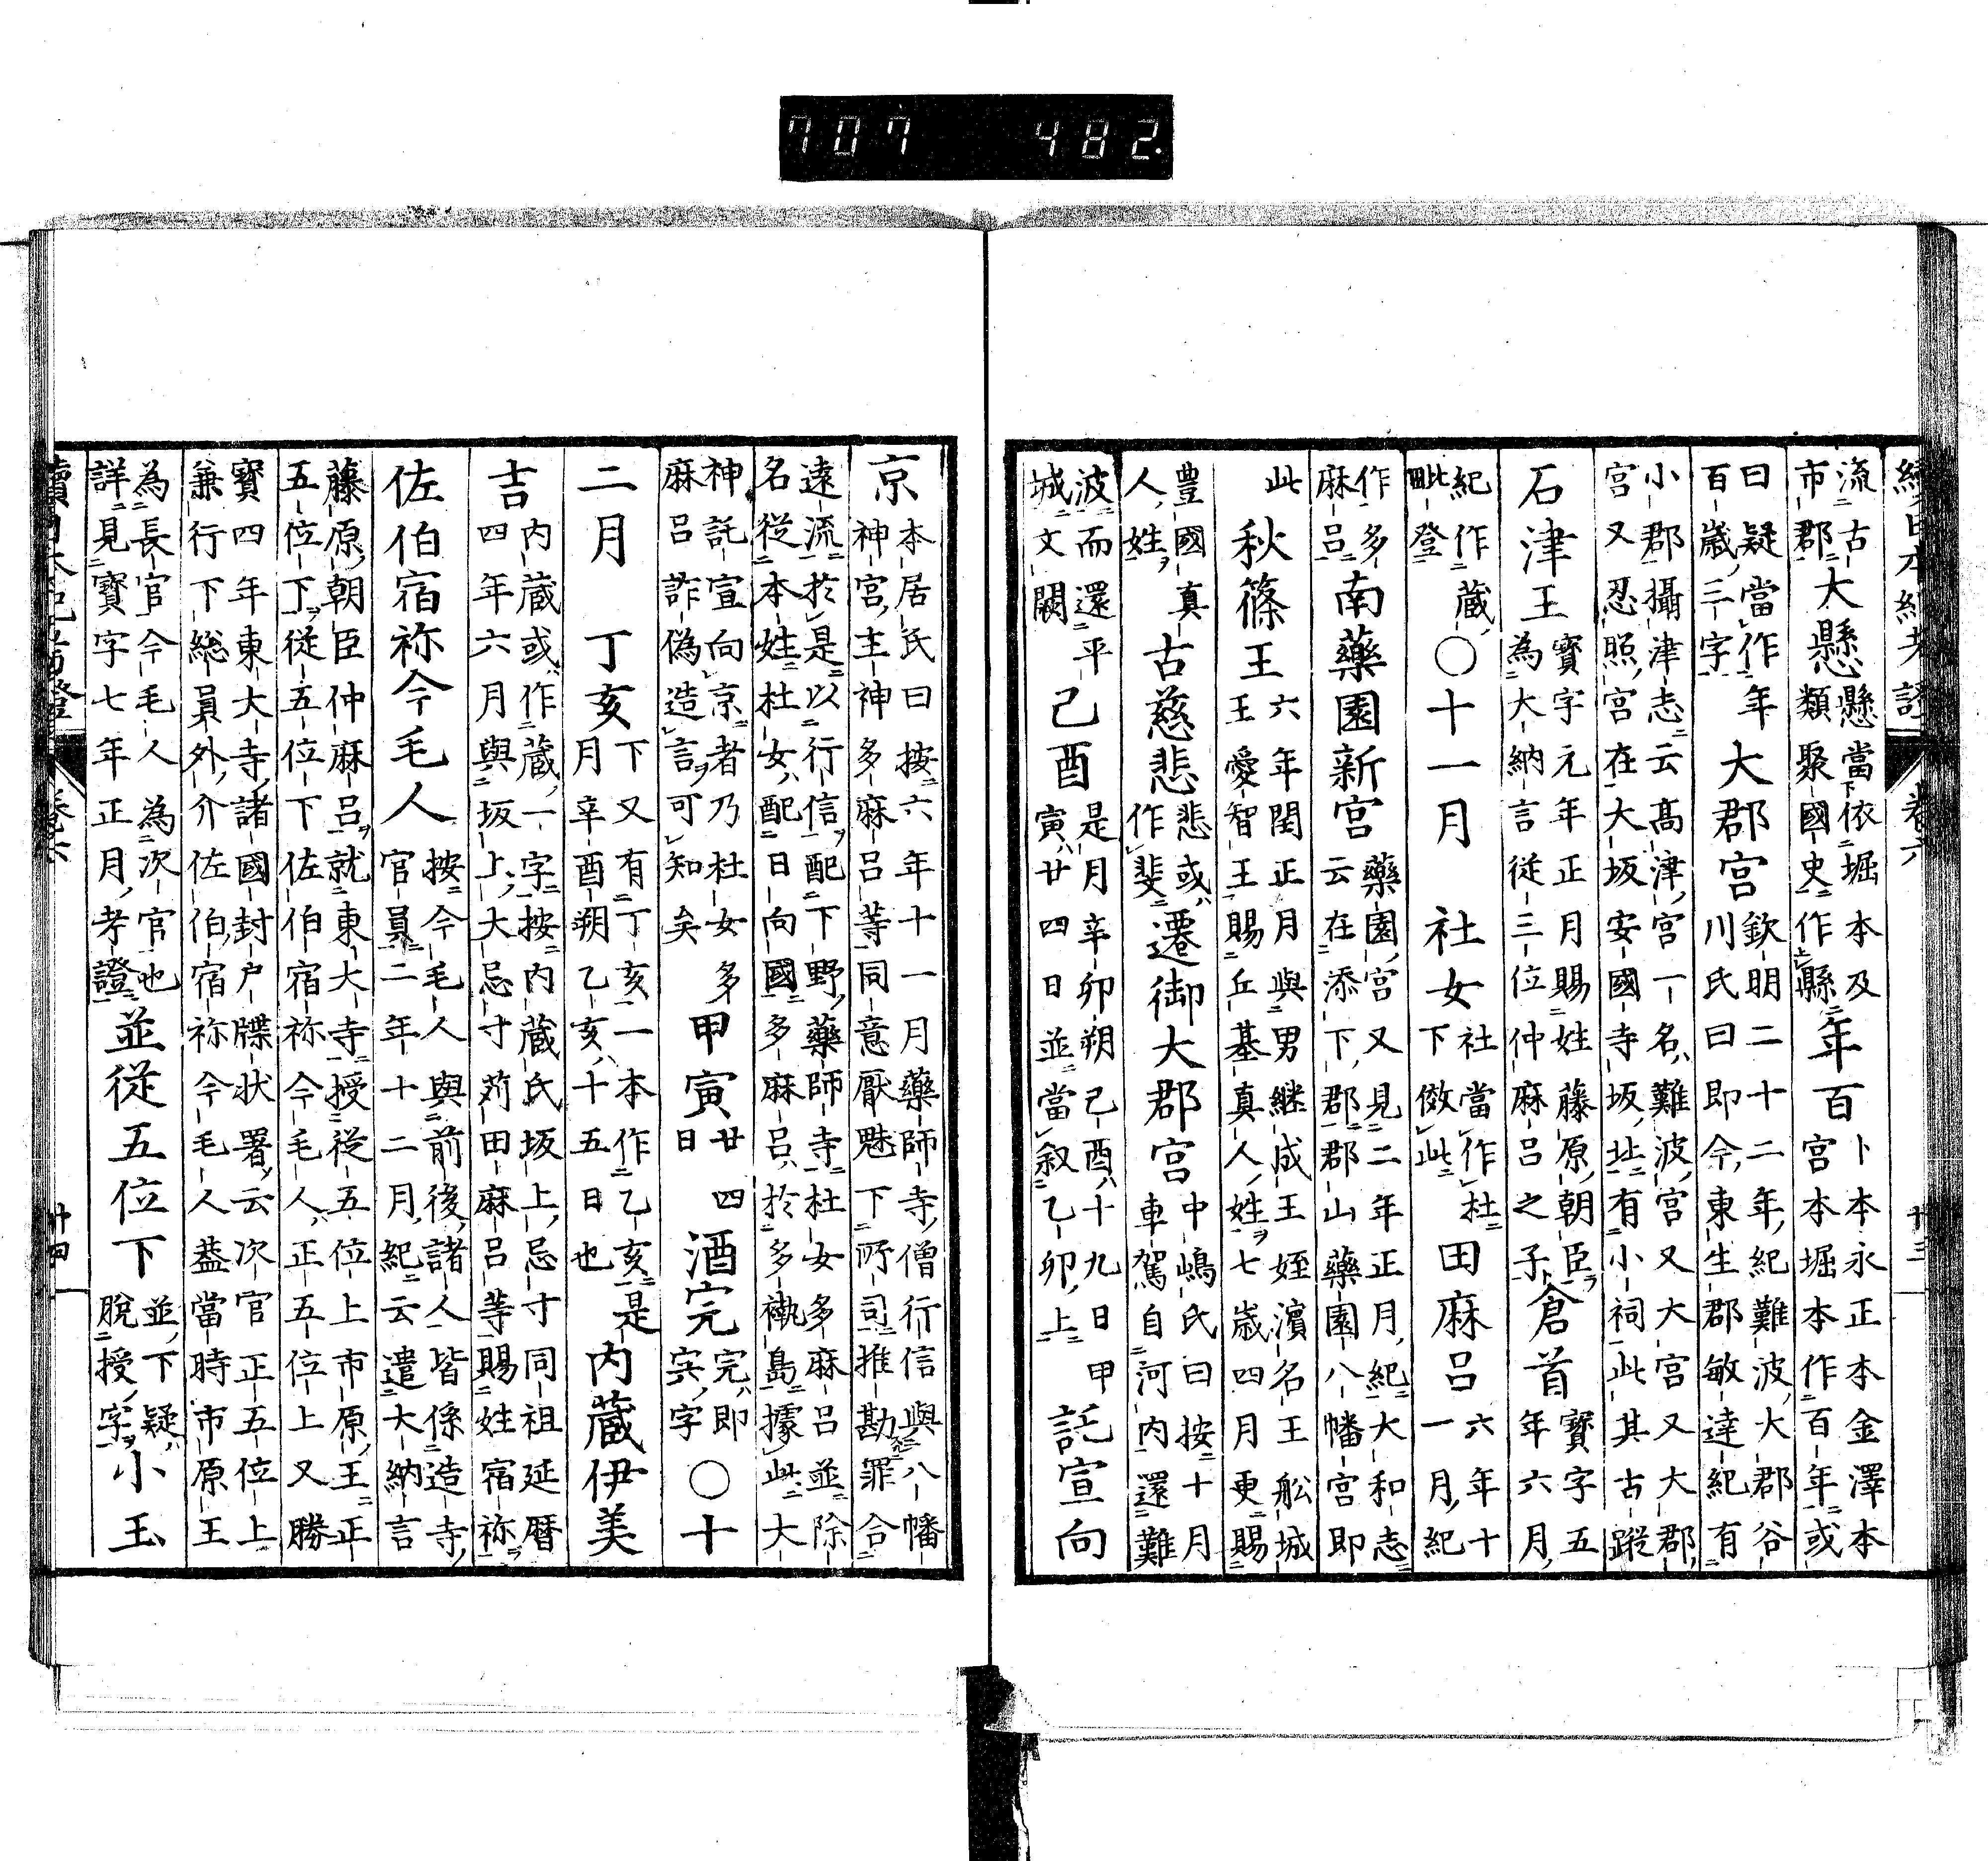 707 482.
續日本紀考證 卷六 廿三
流古
市郡大懸懸當依堀本及
類聚國史作縣年百卜本永正本金澤本
宮本堀本作百年或
曰疑當作年
百歲三字大郡宮欽明二十二年紀難波大郡谷
川氏曰即今東生郡敏達紀有
小郡攝津志云高津宮一名難波宮又大宮又大郡
宮又忍照宮在大坂安國寺坂址有小祠此其古蹤
石津王寶字元年正月賜姓藤原朝臣
為大納言從三位仲麻呂之子倉首寶字五
年六月
紀作藏
毗登○十一月 社女社當作杜
下傚此田麻呂六年十
一月紀
作多
麻呂南藥園新宮藥園宮又見二年正月紀大和志
云在添下郡郡山藥園八幡宮即
此秋篠王六年閏正月與男継成王姪濱名王舩城
王愛智王賜丘基真人姓七歲四月更賜
豊國真
人姓古慈悲悲或
作斐遷御大郡宮中嶋氏曰按十月
車駕自河內還難
波而還平
城文闕己酉是月辛卯朔己酉十九日甲
寅廿四日並當叙乙卯上託宣向
京本居氏曰按六年十一月藥師寺僧行信與八幡
神宮主神多麻呂等同意厭魅下所司推勘罪合
遠流於是以行信配下野藥師寺杜女多麻呂並除
名從本姓杜女配日向國多麻呂於多褹島據此大
神託宣向京者乃杜女多
麻呂詐偽造言可知矣甲寅廿四
日酒完完即
宍字○十
二月 丁亥下又有丁亥一本作乙亥是
月辛酉朔乙亥十五日也内蔵伊美
吉内蔵或作蔵一字按内蔵氏坂上忌寸同祖延暦
四年六月與坂上大忌寸苅田麻呂等賜姓宿祢
佐伯宿祢今毛人按今毛人與前後諸人皆係造寺
官員二年十二月紀云遣大納言
藤原朝臣仲麻呂就東大寺授從五位上市原王正
五位下從五位下佐伯宿祢今毛人正五位上又勝
寶四年東大寺諸國封戸牒状署云次官正五位上
兼行下総員外介佐伯宿祢今毛人葢當時市原王
為長官今毛人為次官也
詳見寶字七年正月考證並從五位下並下疑
脫授字小玉
廿四